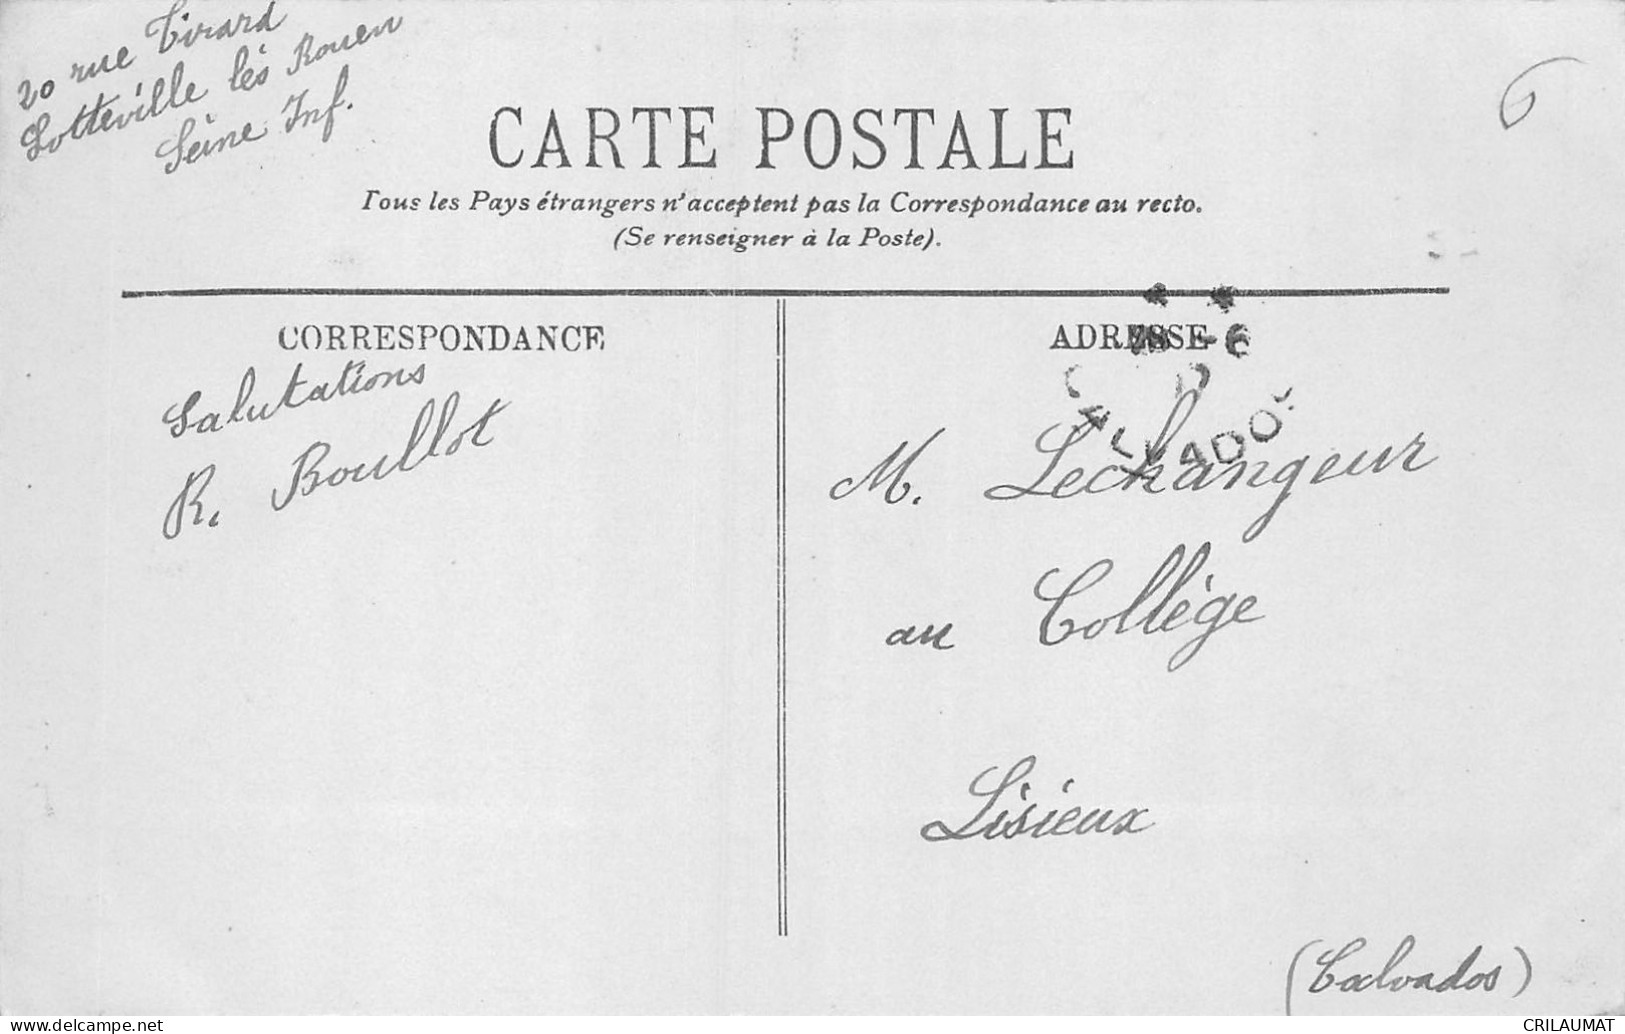 20 rue Tirard
Sotteville lès Rouen
Seine Inf.
6
CARTE POSTALE
Tous les Pays étrangers n'acceptent pas la Correspondance au recto.
(Se renseigner à la Poste).
CORRESPONDANCE
ADRESSE
Salutations
R. Boullot
M. Lechangeur
au Collège
Lisieux
(Calvados)
delcampe.net
CRILAUMAT